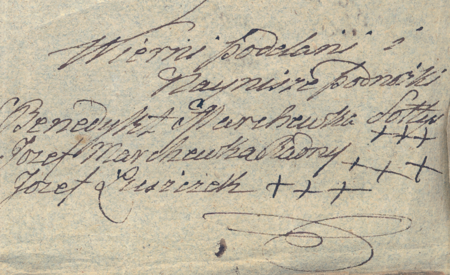 Wierni poddani i
Naynisze podnożki
Benedykt Marchewka Sołtys
+++
Jozef Marchewka Radny +++
Jozef Leszczek +++